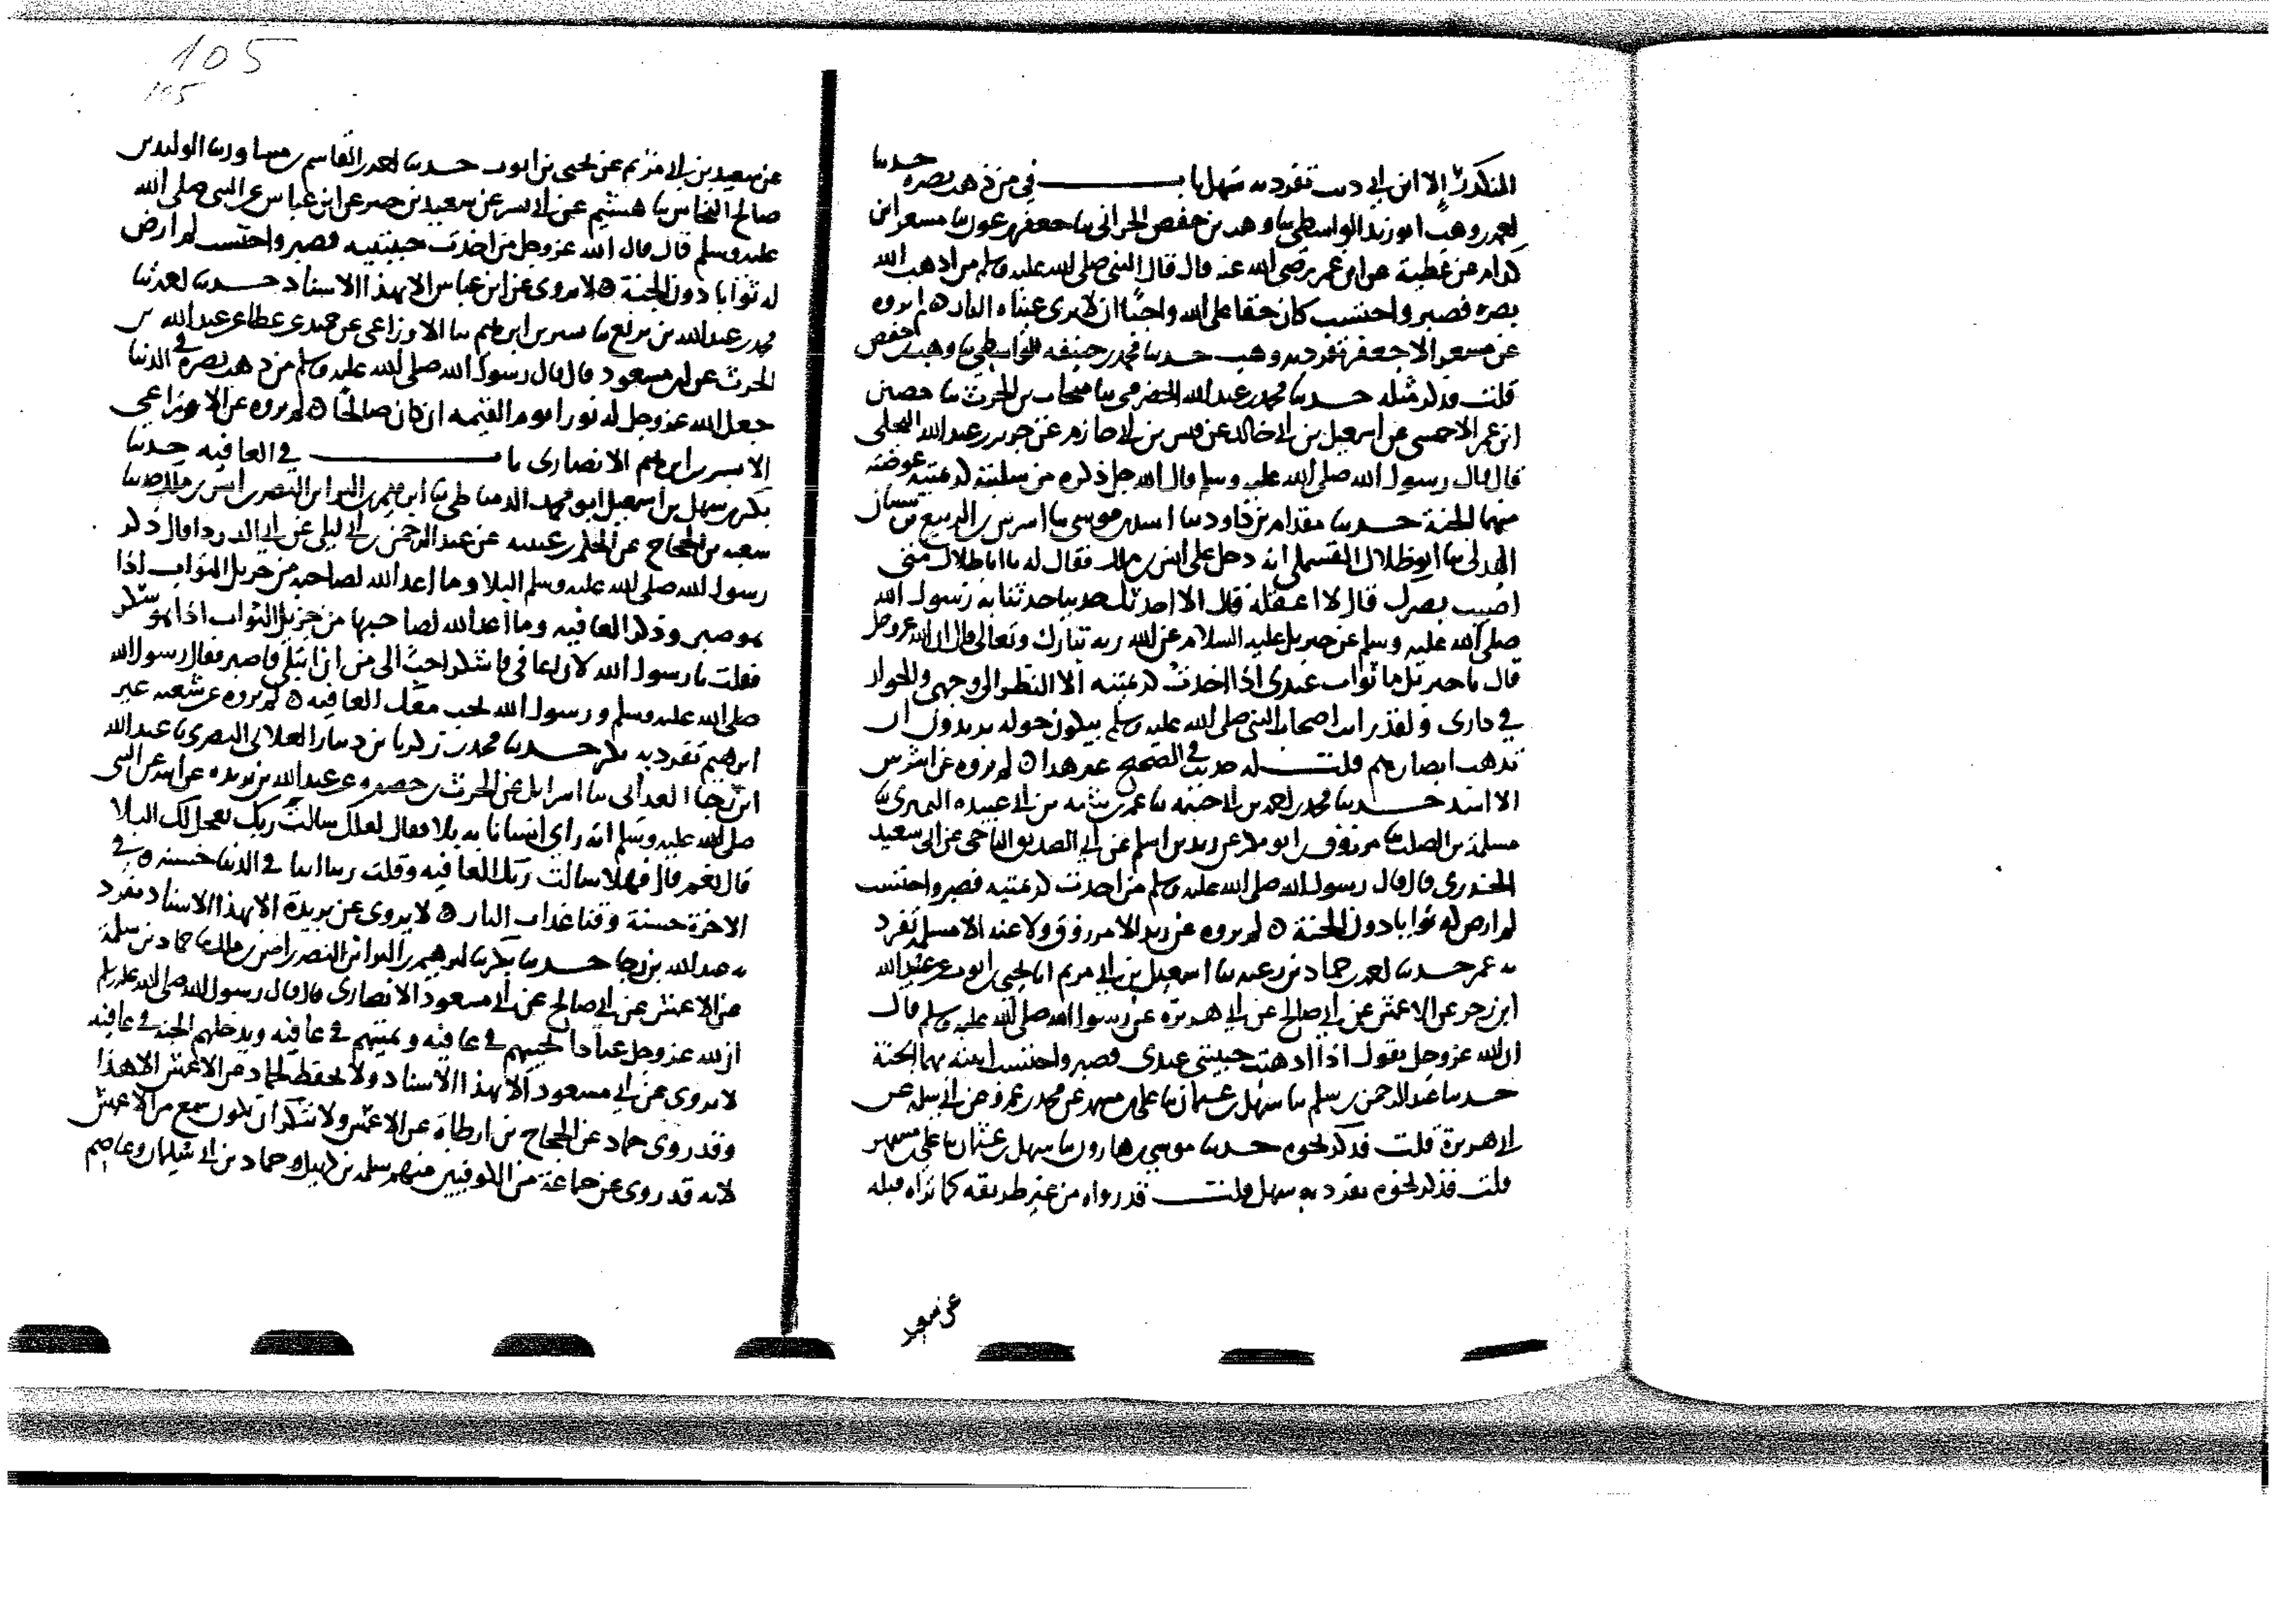 المنكدر إلا ابن أبي ذئب تفرد به سهل باب في من ذهب بصره حدثنا
أحمد بن وهب أبو زيد الواسطي ثنا وهب بن حفص الحراني ثنا جعفر بن عون ثنا مسعر ابن
كدام عن عطية عن ابن عمر رضي الله عنه قال قال النبي صلى الله عليه وسلم من أذهب الله
بصره فصبر واحتسب كان حقا على الله واجبا ان لا يرى عيناه النار لم يروه
عن مسعر الا جعفر تفرد به وهب حدثنا محمد بن حنيفة الواسطي ثنا وهب بن حفص
قلت فذكر مثله حدثنا محمد بن عبد الله الحضرمي ثنا منجاب بن الحرث ثنا حصين
ابن عمر الاحمسي عن اسمعيل بن أبي خالد عن قيس بن أبي حازم عن جرير بن عبد الله البجلي
قال قال رسول الله صلى الله عليه وسلم قال الله جل ذكره من سلبته كريمتيه عوضته
منهما الجنة حدثنا مقدام بن داود ثنا اسد بن موسى ثنا اشرس بن الربيع
الهذلي ثنا ابو ظلال القسملي انه دخل على انس بن ملك فقال له يا ابا ظلال متى
اصيب بصرك قال لا اعقله قال الا احدثك حديثا حدثنا به رسول الله
صلى الله عليه وسلم عن جبريل عليه السلام عن الله ربه تبارك وتعالى قال ان الله عز وجل
قال يا جبريل ما ثواب عبدي اذا اخذت كريمتيه الا النظر الى وجهي والجوار
في داري ولقد رايت اصحاب النبي صلى الله عليه وسلم يبكون حوله يريدون ان
تذهب ابصارهم قلت له حديث في الصحيح غير هذا لم يروه عن اشرس
الا اسد حدثنا محمد بن احمد بن أبي خيثمة ثنا عمر بن شبة بن أبي عبيدة النميري ثنا
مسلمة بن الصلت ثنا مرزوق ابو بكر عن زيد بن اسلم عن أبي الصديق الناجي عن ابي سعيد
الخدري قال قال رسول الله صلى الله عليه وسلم من اخذت كريمتيه فصبر واحتسب
لم ارض له ثوابا دون الجنة لم يروه عن زيد الا مرزوق ولا عنه الا مسلمة تفرد
به عمر حدثنا احمد بن حماد بن زغبة ثنا اسمعيل بن أبي مريم انا يحيى بن ايوب عن عبيد الله
ابن زحر عن الاعمش عن أبي صالح عن أبي هريرة عن رسول الله صلى الله عليه وسلم قال
ان الله عز وجل يقول اذا اذهبت حبيبتي عبدي فصبر واحتسب اثبته بهما الجنة
حدثنا عبد الرحمن بن سلم ثنا سهل بن عثمان ثنا علي بن مسهر عن محمد بن عمرو عن أبي سلمة عن
أبي هريرة قلت فذكر نحوه حدثنا موسى بن هارون ثنا سهل بن عثمان ثنا علي بن مسهر
قلت فذكر نحوه تفرد به سهل قلت قد رواه من غير طريقه كما تراه قبله
عن سعيد
105
105
عن سعيد بن أبي مريم عن يحيى بن ايوب حدثنا احمد بن القاسم بن مساور ثنا الوليد بن
صالح النخاس ثنا هشيم عن أبي بشر عن سعيد بن جبير عن ابن عباس عن النبي صلى الله
عليه وسلم قال قال الله عز وجل من اخذت حبيبتيه فصبر واحتسب لم ارض
له ثوابا دون الجنة لا يروى عن ابن عباس الا بهذا الاسناد حدثنا احمد ثنا
محمد بن عبد الله بن بزيع ثنا بشر بن ابرهيم ثنا الاوزاعي عن حميد بن عطا عن عبد الله بن
الحرث عن ابن مسعود قال قال رسول الله صلى الله عليه وسلم من ذهب بصره في الدنيا
جعل الله عز وجل له نورا يوم القيمه ان كان صالحا لم يروه عن الاوزاعي
الا بشر بن ابرهيم الانصاري باب في العافيه حدثنا
بكر بن سهل بن اسمعيل ابو محمد الدمياطي ثنا ابرهيم بن البرا ابن النضر بن انس بن ملك ثنا
شعبه بن الحجاج عن الحكم بن عتيبه عن عبد الرحمن بن أبي ليلى عن أبي الدردا قال ذكر
رسول الله صلى الله عليه وسلم البلا وما اعد الله لصاحبه من جزيل الثواب اذا
هو صبر وذكر العافيه وما اعد الله لصاحبها من جزيل الثواب اذا هو شكر
فقلت يا رسول الله لان اعافى فاشكر احب الى من ان ابتلى فاصبر فقال رسول الله
صلى الله عليه وسلم ورسول الله يحب معك العافيه لم يروه عن شعبه غير
ابرهيم تفرد به بكر حدثنا محمد بن زكريا بن دينار الغلابي البصري ثنا عبد الله
ابن رجا الغداني ثنا اسرائيل عن الحرث بن حصيرة عن عبد الله بن بريده عن ابيه عن النبي
صلى الله عليه وسلم انه راى انسانا به بلا فقال لعلك سالت ربك يعجل لك البلا
قال نعم قال فهلا سالت ربك العافيه وقلت ربنا اتنا في الدنيا حسنه وفي
الاخرة حسنة وقنا عذاب النار لا يروى عن بريدة الا بهذا الاسناد تفرد
به عبد الله بن رجا حدثنا بكر ثنا ابرهيم بن البرا ابن النضر بن انس بن ملك ثنا حماد بن سلمة
عن الاعمش عن أبي صالح عن أبي مسعود الانصاري قال قال رسول الله صلى الله عليه وسلم
ان لله عز وجل عبادا يحييهم في عافيه ويميتهم في عافيه ويدخلهم الجنه في عافيه
لا يروى عن أبي مسعود الا بهذا الاسناد ولا يحفظ لحماد عن الاعمش الا هذا
وقد روى حماد عن الحجاج بن ارطاة عن الاعمش ولا ننكر ان يكون سمع من الاعمش
لانه قد روى عن جماعة من الكوفيين منهم سلمه بن كهيل وحماد بن أبي سليمان وعاصم